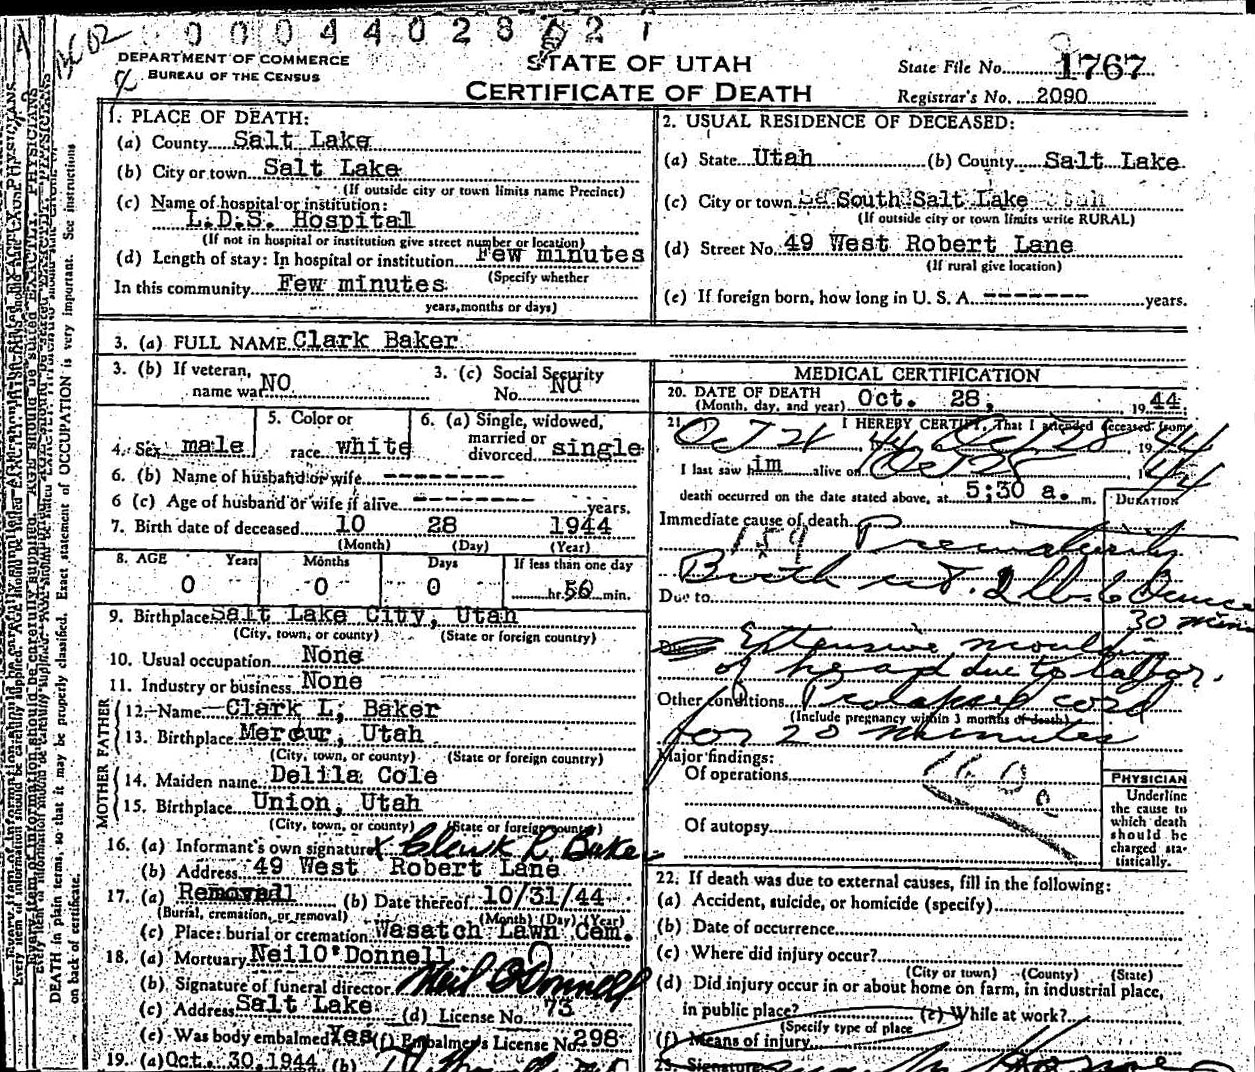 0004402872
DEPARTMENT OF COMMERCE
BUREAU OF THE CENSUS
STATE OF UTAH
CERTIFICATE OF DEATH
State File No. 1767
Registrar's No. 2090
1. PLACE OF DEATH:
(a) County Salt Lake
(b) City or town Salt Lake
(If outside city or town limits name Precinct)
(c) Name of hospital or institution:
L.D.S. Hospital
(If not in hospital or institution give street number or location)
(d) Length of stay: In hospital or institution Few minutes
(Specify whether
In this community Few minutes
years, months or days)
2. USUAL RESIDENCE OF DECEASED:
(a) State Utah (b) County Salt Lake
(c) City or town South Salt Lake
(If outside city or town limits write RURAL)
(d) Street No. 49 West Robert Lane
(If rural give location)
(e) If foreign born, how long in U. S. A. ------- years.
3. (a) FULL NAME Clark Baker
3. (b) If veteran, name war NO
3. (c) Social Security No. NO
4. Sex male
5. Color or race white
6. (a) Single, widowed, married or divorced single
6. (b) Name of husband or wife ---------
6 (c) Age of husband or wife if alive --------- years.
7. Birth date of deceased 10 28 1944
(Month) (Day) (Year)
8. AGE Years Months Days If less than one day
0 0 0 hr. 56 min.
9. Birthplace Salt Lake City, Utah
(City, town, or county) (State or foreign country)
10. Usual occupation None
11. Industry or business None
FATHER
12. Name Clark L. Baker
13. Birthplace Mercur, Utah
(City, town, or county) (State or foreign country)
MOTHER
14. Maiden name Delila Cole
15. Birthplace Union, Utah
(City, town, or county) (State or foreign country)
16. (a) Informant's own signature x Clark L. Baker
(b) Address 49 West Robert Lane
17. (a) Removal (b) Date thereof 10/31/44
(Burial, cremation, or removal) (Month) (Day) (Year)
(c) Place: burial or cremation Wasatch Lawn Cem.
18. (a) Mortuary Neil O'Donnell
(b) Signature of funeral director Neil O'Donnell
(c) Address Salt Lake (d) License No. 73
(e) Was body embalmed Yes (f) Embalmer's License No. 298
19. (a) Oct. 30, 1944 (b)
MEDICAL CERTIFICATION
20. DATE OF DEATH
(Month, day, and year) Oct. 28, 1944
21. I HEREBY CERTIFY, That I attended deceased from
Oct 28 44 Oct 28 1944
I last saw him alive on Oct 28 1944
death occurred on the date stated above, at 5:30 a. m.
DURATION
Immediate cause of death
159 Prematurity
Birth wt. 2 lb. 6 Ounce
Due to
30 mins
Due Extensive moulding
of head due to labor.
Other conditions Prolapsed cord
(Include pregnancy within 3 months of death)
for 20 minutes
Major findings:
Of operations
160
Of autopsy
PHYSICIAN
Underline
the cause to
which death
should be
charged sta-
tistically.
22. If death was due to external causes, fill in the following:
(a) Accident, suicide, or homicide (specify)
(b) Date of occurrence
(c) Where did injury occur?
(City or town) (County) (State)
(d) Did injury occur in or about home on farm, in industrial place,
in public place? (e) While at work?
(Specify type of place
(f) Means of injury
23. Signature
DEATH in plain terms, so that it may be properly classified. Exact statement of OCCUPATION is very important. See instructions
on back of certificate.